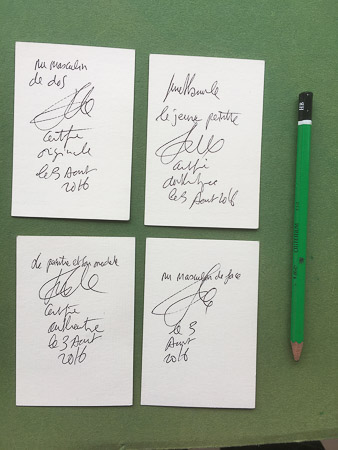 nu masculin
de dos
certifié
originale
le 3 Août
2016
le jeune peintre
certifié
authentique
le 3 Août 2016
le peintre et son modele
certifié
authentique
le 3 Août
2016
nu masculin de face
le 3
Août
2016
HB